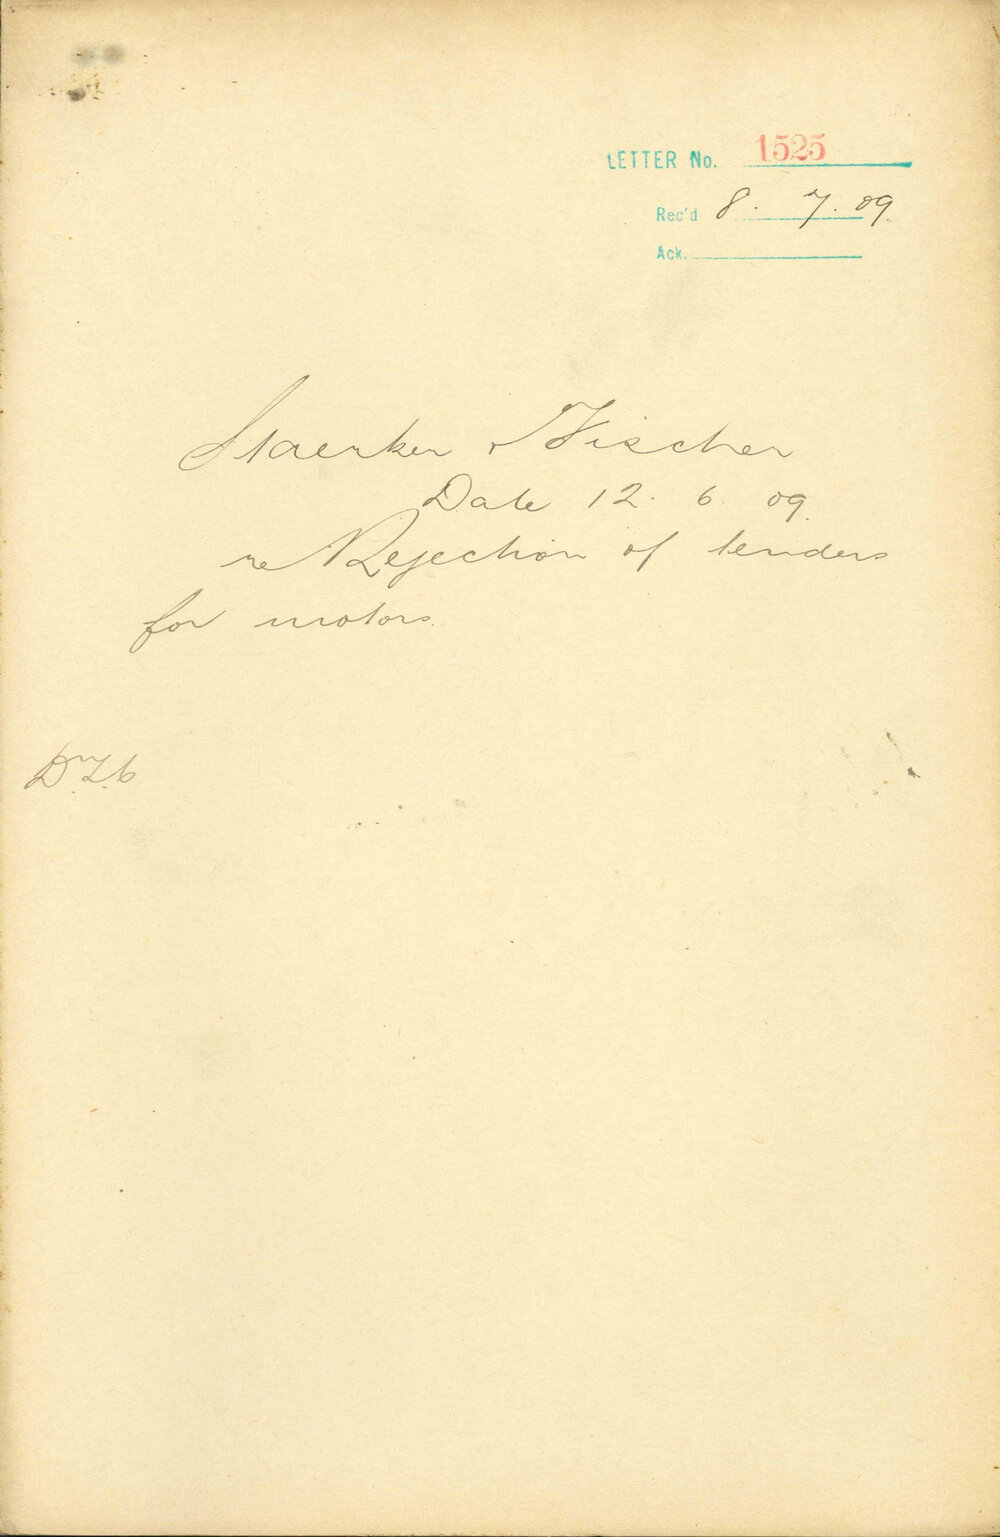 LETTER No. 1525
Rec'd 8. 7. 09.
Ack.
Staerker & Fischer
Date 12. 6. 09.
re Rejection of tenders
for motors.